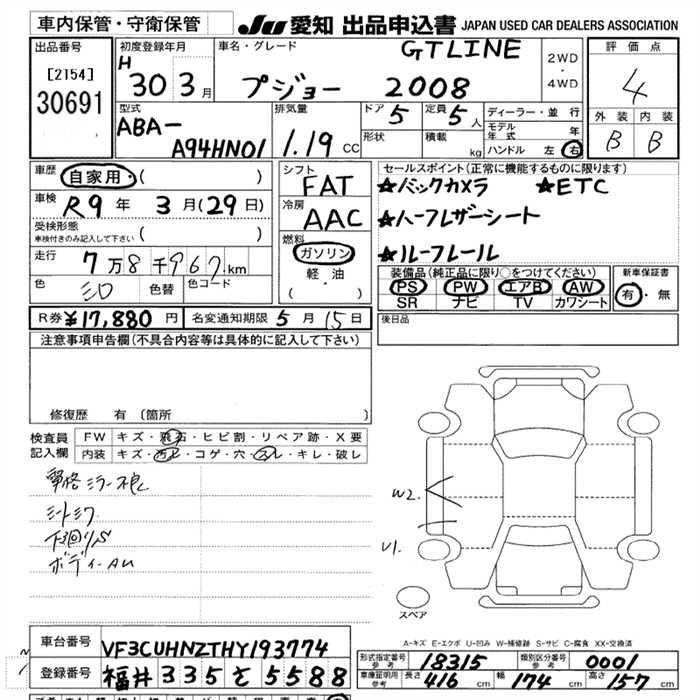 車内保管・守衛保管
JU 愛知 出品申込書 JAPAN USED CAR DEALERS ASSOCIATION
出品番号
[2154]
30691
初度登録年月
H 30 3月
車名・グレード
GT LINE
プジョー 2008
2WD
・
4WD
評価点
4
外装 内装
B B
型式
ABA-
A94HN01
排気量
1.19 CC
ドア 5
定員 5人
形状
積載 kg
ディーラー・並行
モデル年式 年
ハンドル 左 右
車歴
自家用・( )
車検
R9年 3月(29日)
受検形態
車検付きのみ記入して下さい ( )
走行
7万8千967km
色 色替 色コード
シロ
シフト
FAT
冷房
AAC
燃料
ガソリン
軽・油
( )
セールスポイント(正常に機能するものに限ります)
★バックカメラ ★ETC
★ハーフレザーシート
★ルーフレール
装備品(純正品に限り○をつけてください)
PS PW エアB AW
SR ナビ TV カワシート
新車保証書
有・無
R券 ¥17,880円 名変通知期限 5月15日
後日品
注意事項申告欄(不具合内容等は具体的に記入して下さい)
修復歴 有 (箇所
検査員記入欄
FW キズ・飛石・ヒビ割・リペア跡・X要
内装 キズ・汚レ・コゲ・穴・スレ・キレ・破レ
シートシワ
下回りS
W2.
U1.
スペア
A-キズ E-エクボ U-凹み W-補修跡 S-サビ C-腐食 XX-交換済
車台番号 VF3CUHNZTHY193774
登録番号 福井 335 そ 5588
形式指定番号 参考 18315
類別区分番号 参考 0001
車庫証明用 参考 長さ 416 cm 幅 174 cm 高さ 157 cm